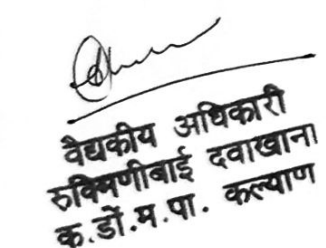 वैद्यकीय अधिकारी
रुक्मिणीबाई दवाखाना
क.डों.म.पा. कल्याण